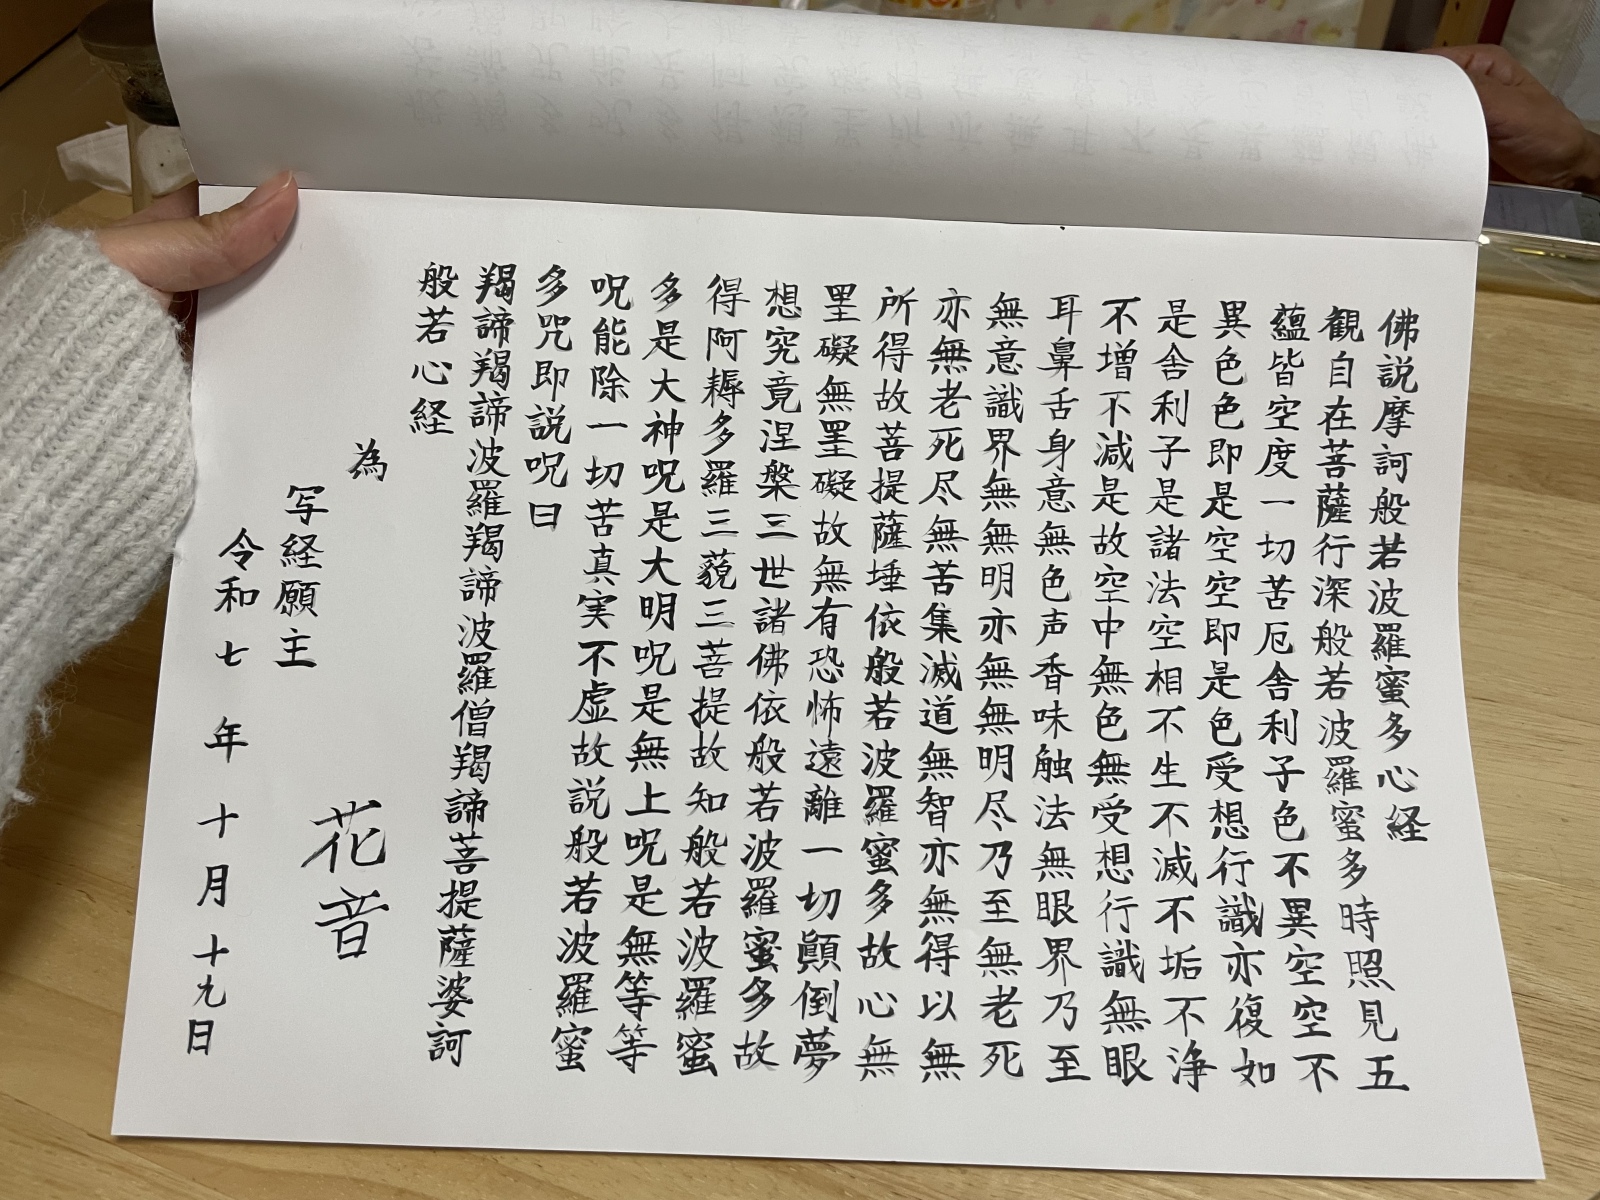 佛説摩訶般若波羅蜜多心経
観自在菩薩行深般若波羅蜜多時照見五
蘊皆空度一切苦厄舎利子色不異空空不
異色色即是空空即是色受想行識亦復如
是舎利子是諸法空相不生不滅不垢不浄
不増不減是故空中無色無受想行識無眼
耳鼻舌身意無色声香味触法無眼界乃至
無意識界無無明亦無無明尽乃至無老死
亦無老死尽無苦集滅道無智亦無得以無
所得故菩提薩埵依般若波羅蜜多故心無
罣礙無罣礙故無有恐怖遠離一切顛倒夢
想究竟涅槃三世諸佛依般若波羅蜜多故
得阿耨多羅三藐三菩提故知般若波羅蜜
多是大神呪是大明呪是無上呪是無等等
呪能除一切苦真実不虚故説般若波羅蜜
多咒即説呪曰
羯諦羯諦波羅羯諦波羅僧羯諦菩提薩婆訶
般若心経
為
写経願主 花音
令和七年十月十九日